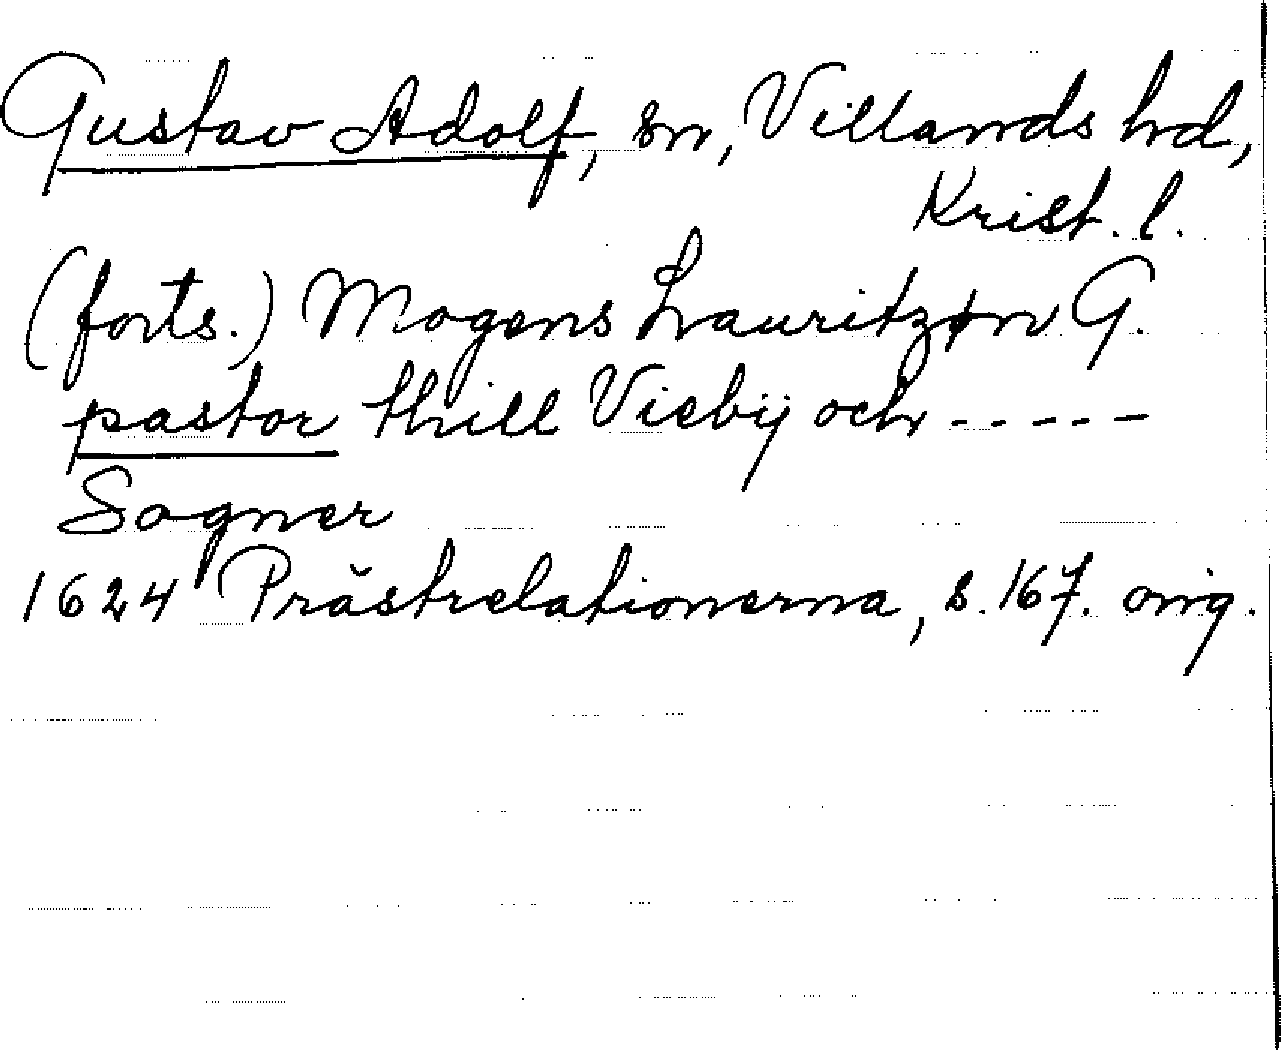 Gustav Adolf, sn, Villands hd,
Krist. l.
(forts.) Mogens Lauritzøn G.
pastor thill Viebÿ och -----
Sogner
1624 Prästrelationerna, s. 167. orig.